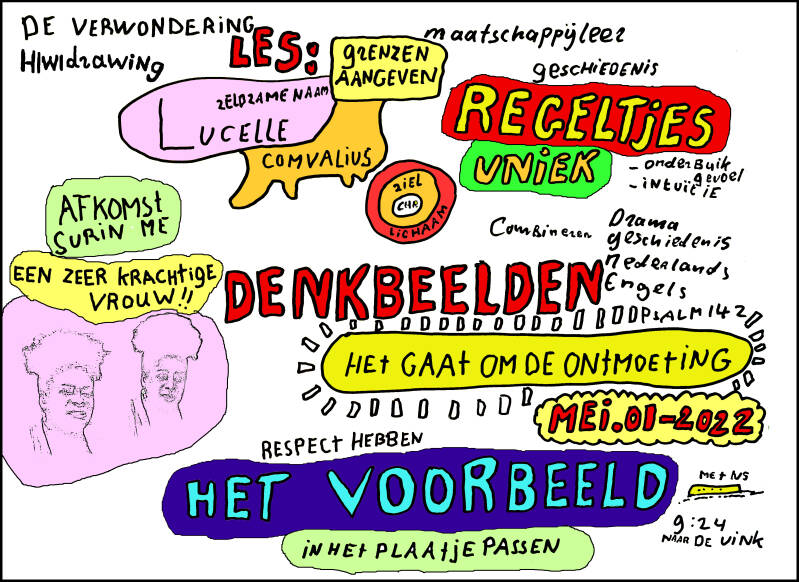 DE VERWONDERING
HIWIdrawing
LES:
GRENZEN
AANGEVEN
maatschappijleer
GESCHIEDENIS
ZELDZAME NAAM
LUCELLE
COMVALIUS
REGELTJES
UNIEK
- ONDERBUIK
gevoel
- iNTUïCiE
ZIEL
CHR
LICHAAM
AFKOMST
SURIN ME
EEN ZEER KRACHTIGE
VROUW!!
Combineren
Drama
geschiedenis
nederlands
Engels
PSALM 142
DENKBEELDEN
HET GAAT OM DE ONTMOETING
MEi.01-2022
RESPECT HEBBEN
HET VOORBEELD
iN HET PLAATJE PASSEN
MET NS
9:24
NAAR DE VINK